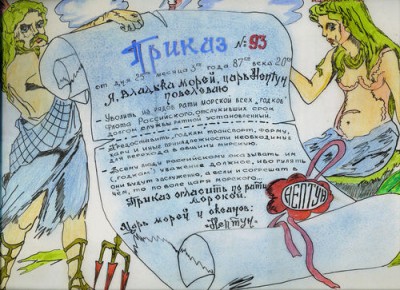 Приказ № 93
от дня 25го месяца 3го года 87го века 20го
Я, Владыка морей, царь Нептун
повелеваю
– Уволить из рядов рати морской всех „годков"
флота Российского, отслуживших срок
долгой службы ратной установленный.
– Предоставить годкам транспорт, форму,
и иные принадлежности необходимые
для перехода в общину мирскую.
– Всему люду российскому оказывать им
(годкам) уважение должное, ибо гулять
они будут заслуженно, а если и согрешат в
чём, то по воле царя морского...
Приказ огласить по рати
морской.
Царь морей и океанов:
„Нептун"
НЕПТУН